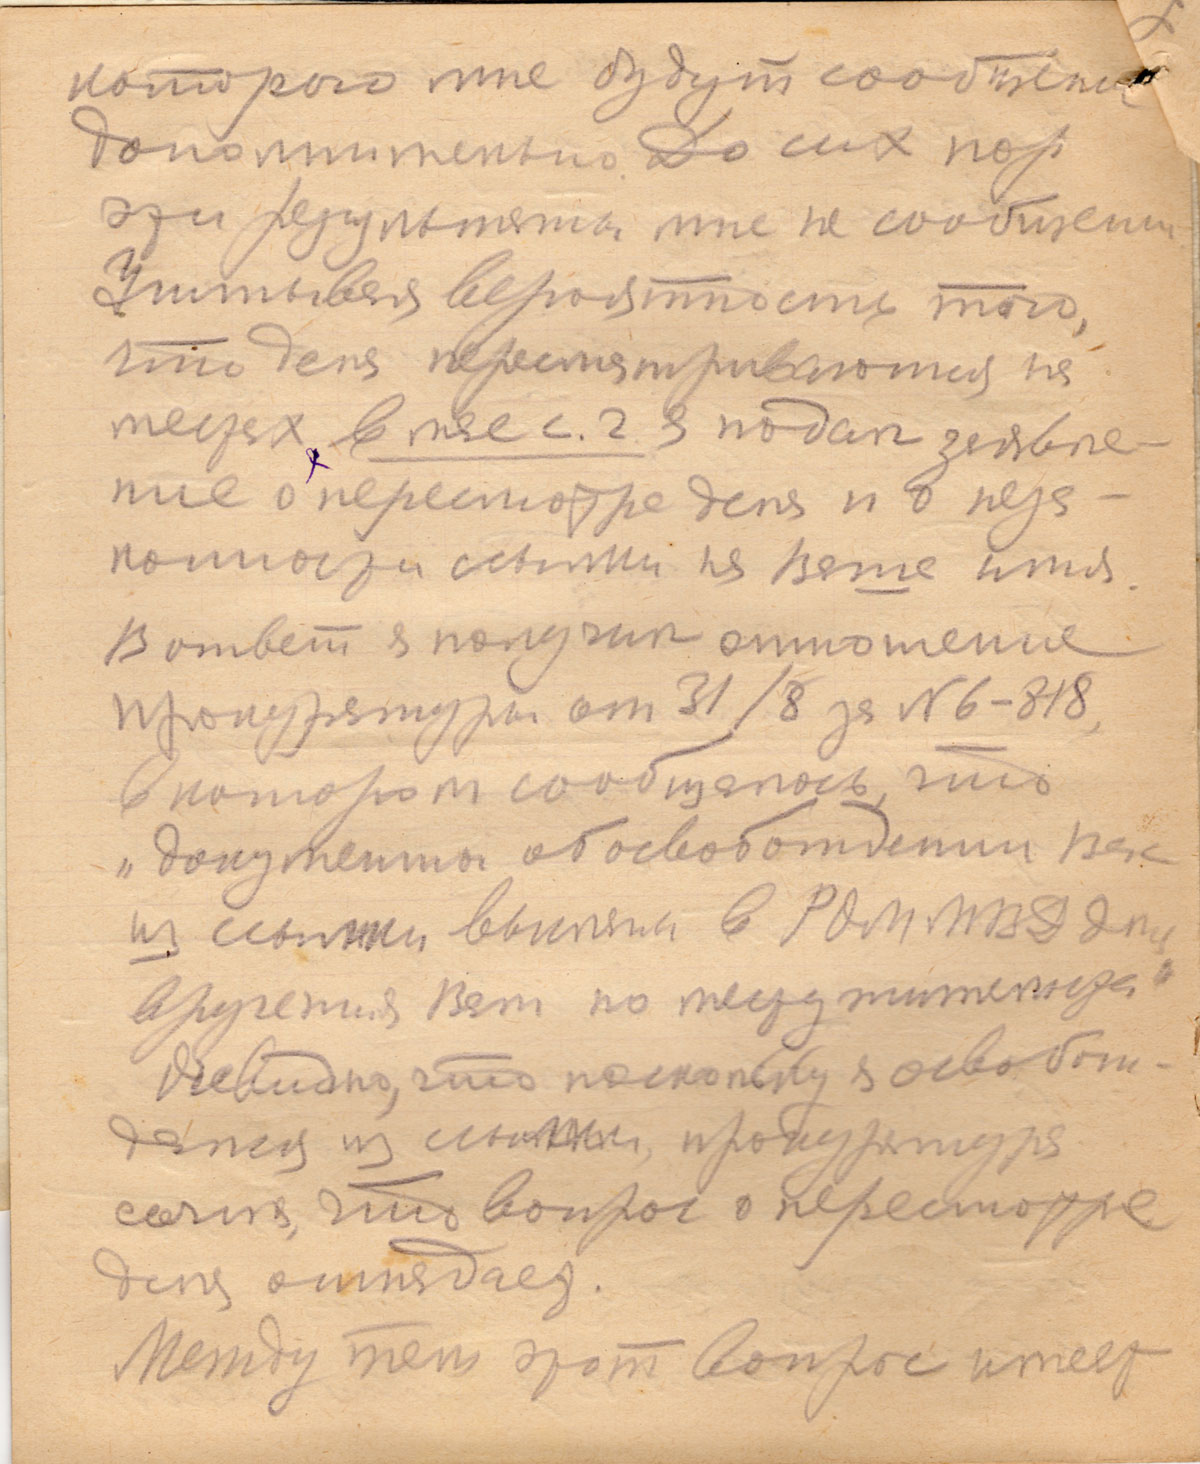 которого мне будут сообщены
дополнительно. До сих пор
эти результаты мне не сообщены
Учитывая вероятность того,
что дела пересматриваются на
местах, в мае с. г. я подал заявле-
ние о пересмотре дела и о неза-
конности ссылки на Ваше имя.
В ответ я получил отношение
прокуратуры от 31/8 за N 6-818,
в котором сообщалось, что
„документы об освобождении Вас
из ссылки высланы в РОМ МВД для
вручения Вам по месту жительства"
Очевидно, что поскольку я освобож-
дался из ссылки, прокуратура
сочла, что вопрос о пересмотре
дела отпадает.
Между тем этот вопрос имеет